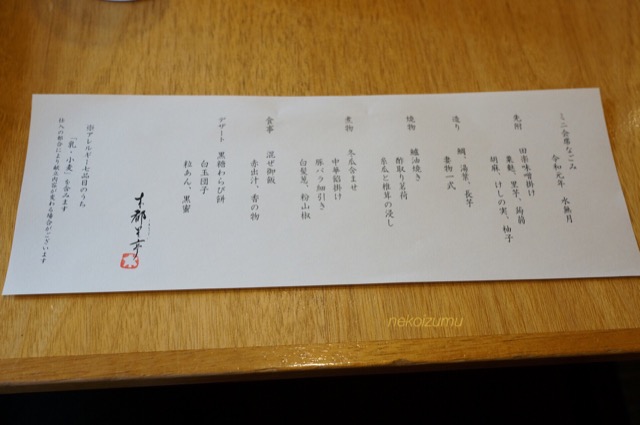 ミニ会席なごみ
令和元年　水無月
先附
田楽味噌掛け
粟麩、里芋、蒟蒻
胡麻、けしの実、柚子
造り
鯛、湯葉、長芋
妻物一式
焼物
鱸油焼き
酢取り茗荷
糸瓜と椎茸の浸し
煮物
冬瓜含ませ
中華餡掛け
豚バラ細引き
白髪葱、粉山椒
食事
混ぜ御飯
赤出汁、香の物
デザート
黒糖わらび餅
白玉団子
粒あん、黒蜜
※アレルギー七品目のうち
「乳・小麦」を含みます
仕入の都合により献立内容が変わる場合がございます
nekoizumu